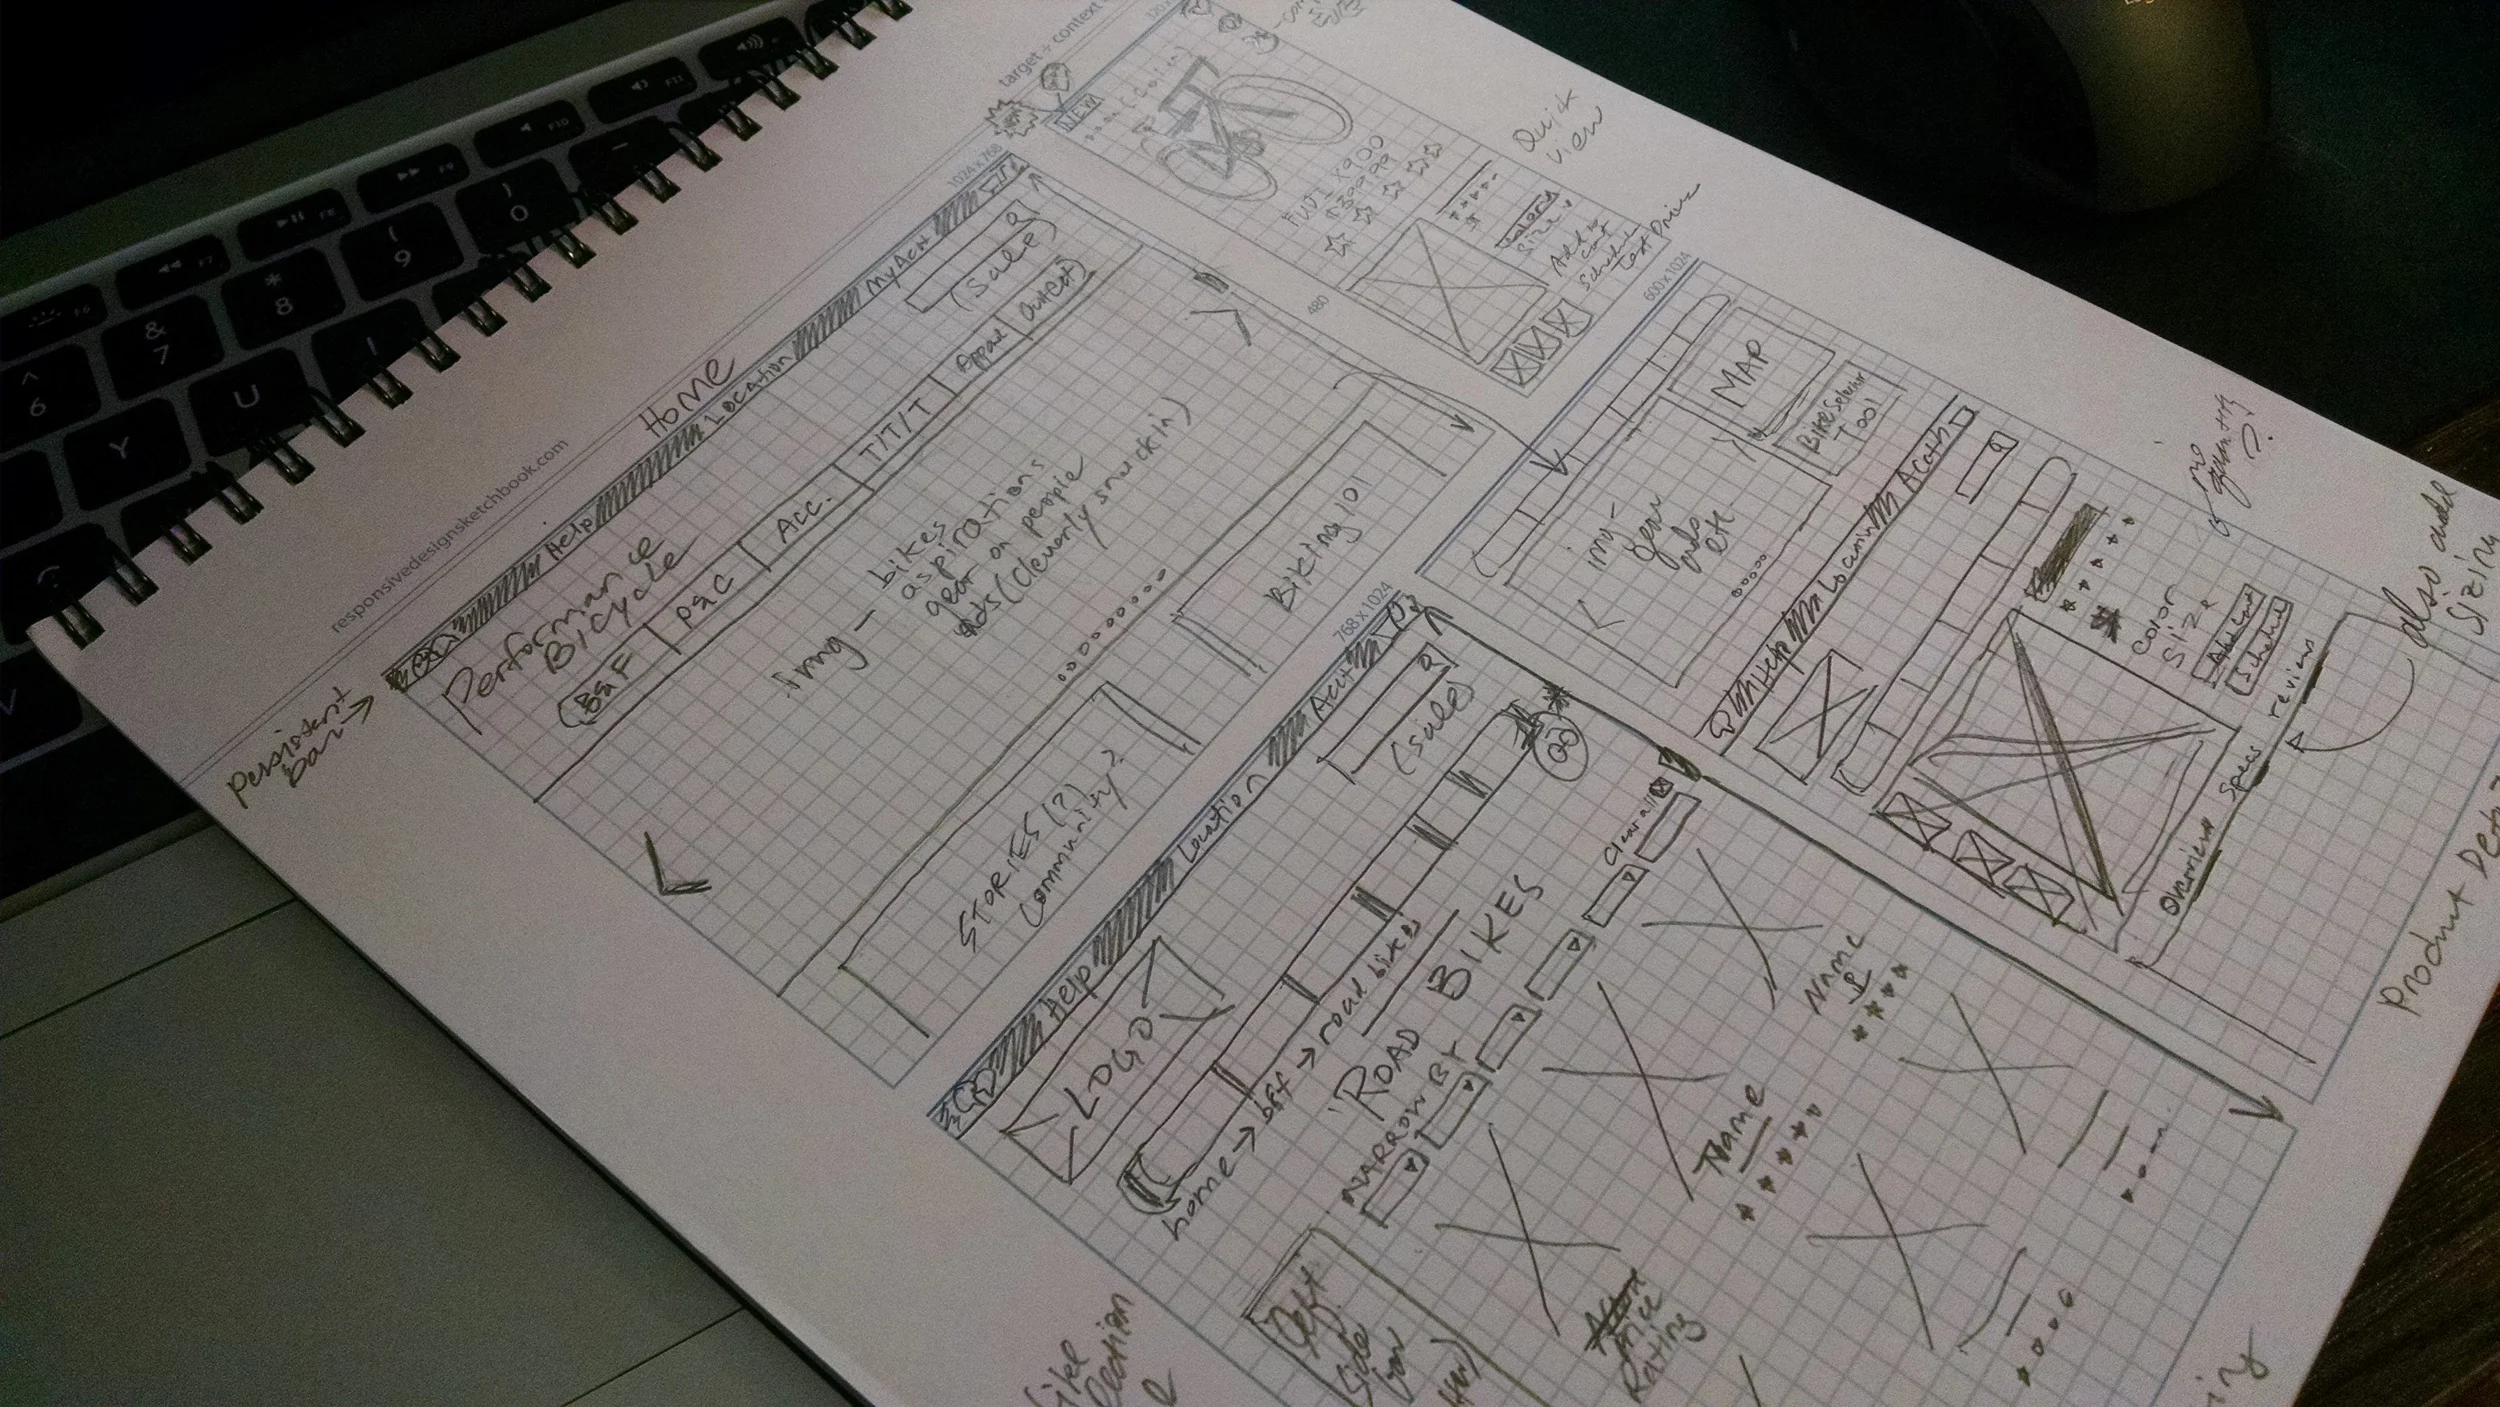 responsivedesignsketchbook.com
target ÷ context
Home
1024 x 768
persistent
bar →
Help
Location
My Acct
Performance
Bicycle
(Sale)
B&F
P&C
Acc.
T/T/T
Outlet
img - bikes
aspirations
gear on people
ads (cleverly snuck in)
STORIES (?)
Community?
Biking 101
NEW
FUJI X900
Quick
view
Size
Add to
cart
Schedule
Test Drive
480
600 x 1024
MAP
Bike Selector
Tool
img -
gear
ads
etc
Help
Location
no
quantity
?
also add
sizing
Color
Size
Add Cart
Schedule
Overview
Specs
reviews
Product
768 x 1024
Help
Location
Acct
LOGO
(sale)
home → b&f → road bikes
ROAD BIKES
NARROW BY
Clear all
Name
$
Name
Price
Rating
Left
Side
F6
F7
F8
F9
F10
F11
^
6
&
7
*
8
(
9
)
0
Y
U
I
V